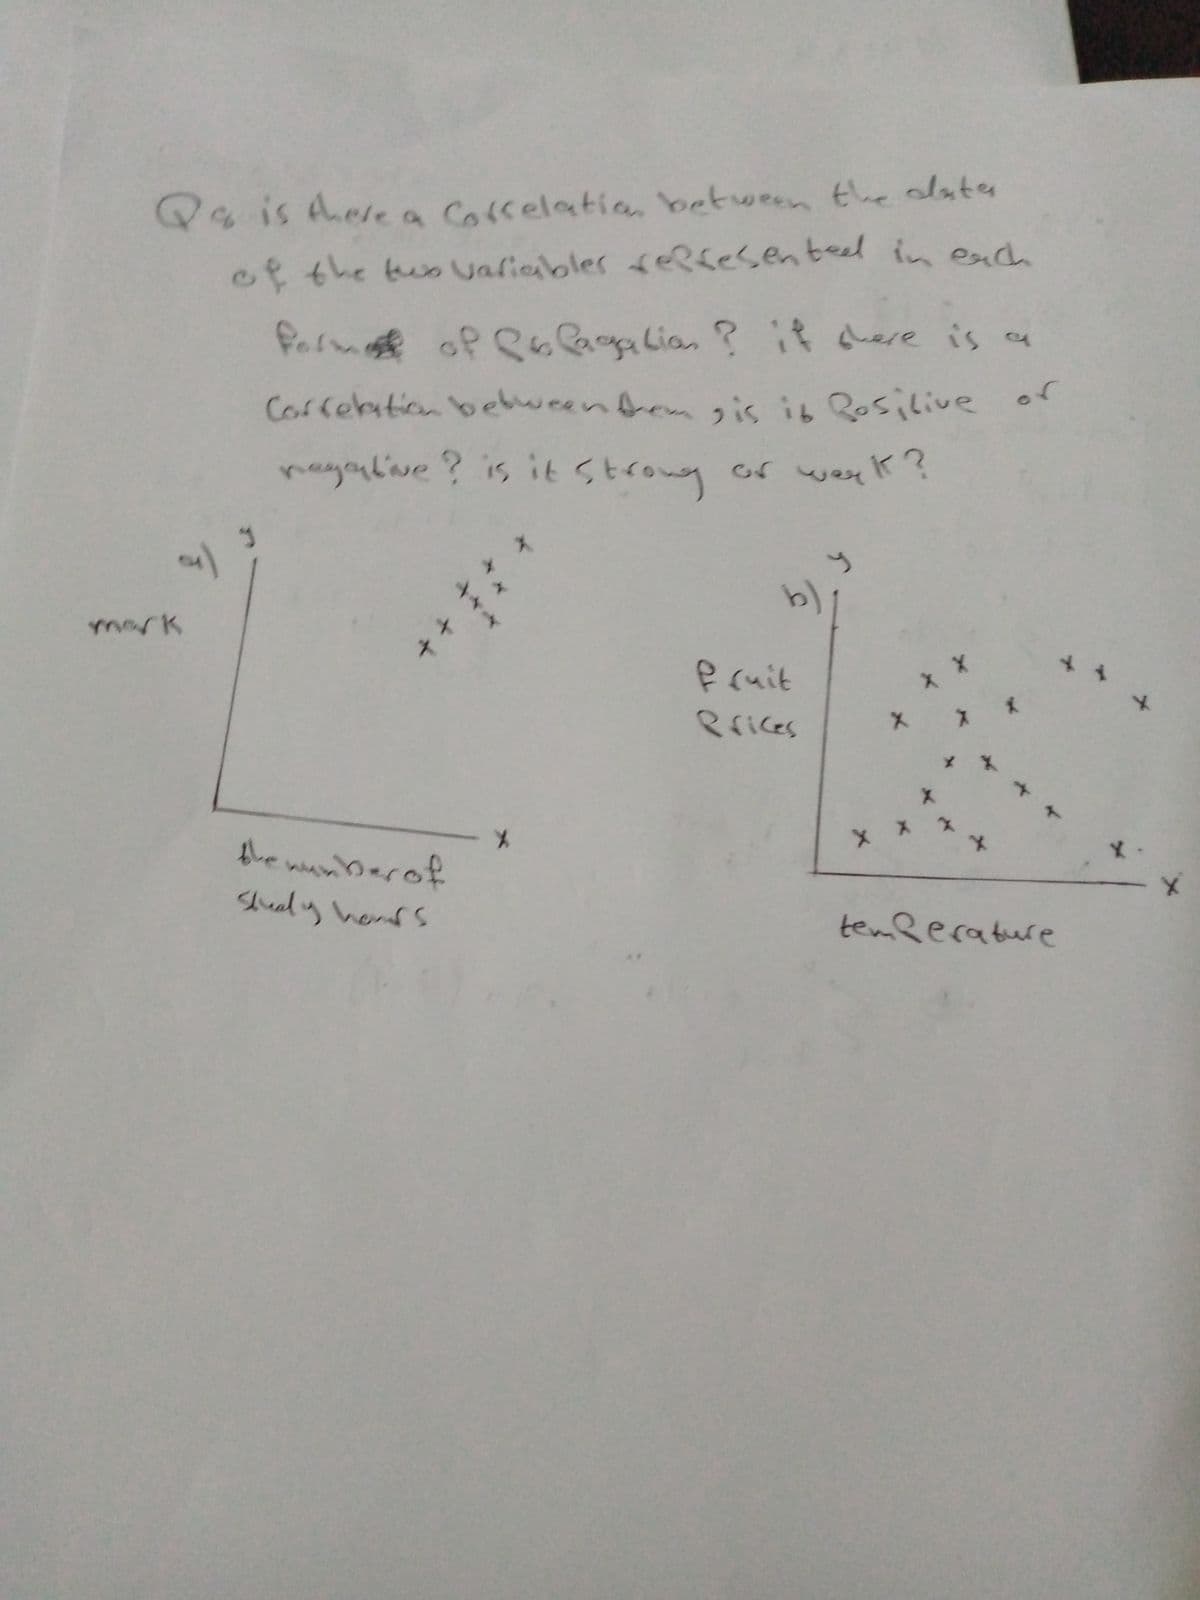 Q: is there a Correlation between the data
of the two variables represented in each
form of Propagation? if there is a
Correlation between them, is it Positive or
negative? is it strong or weak?
a)
y
mark
x
the number of
study hours
b)
y
fruit
Prices
x
temperature